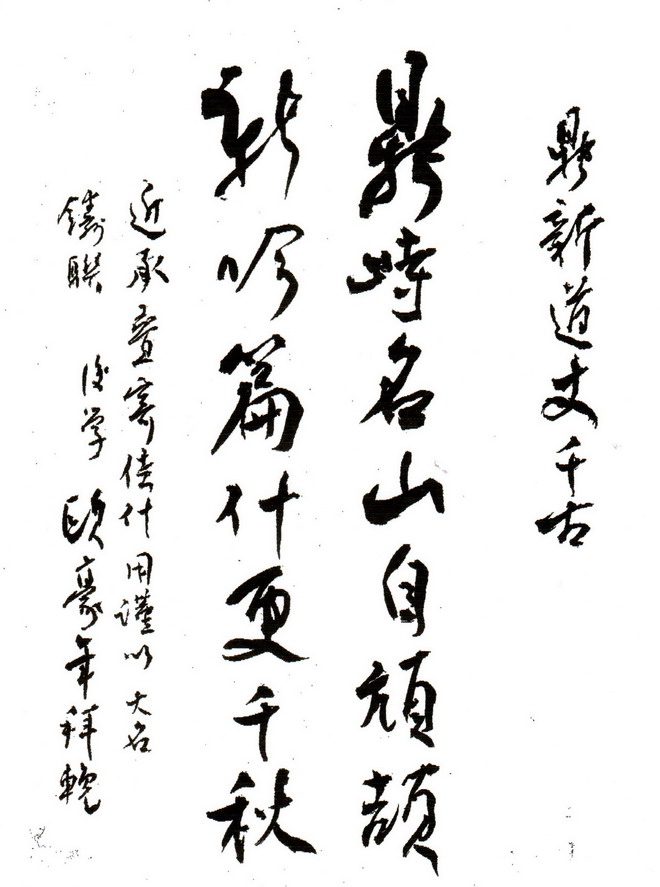 鼎新道丈千古
鼎峙名山自頏頡
新吟篇什更千秋
近承寄佳什用謹以大名
鑄聯 後學 歐豪年拜輓